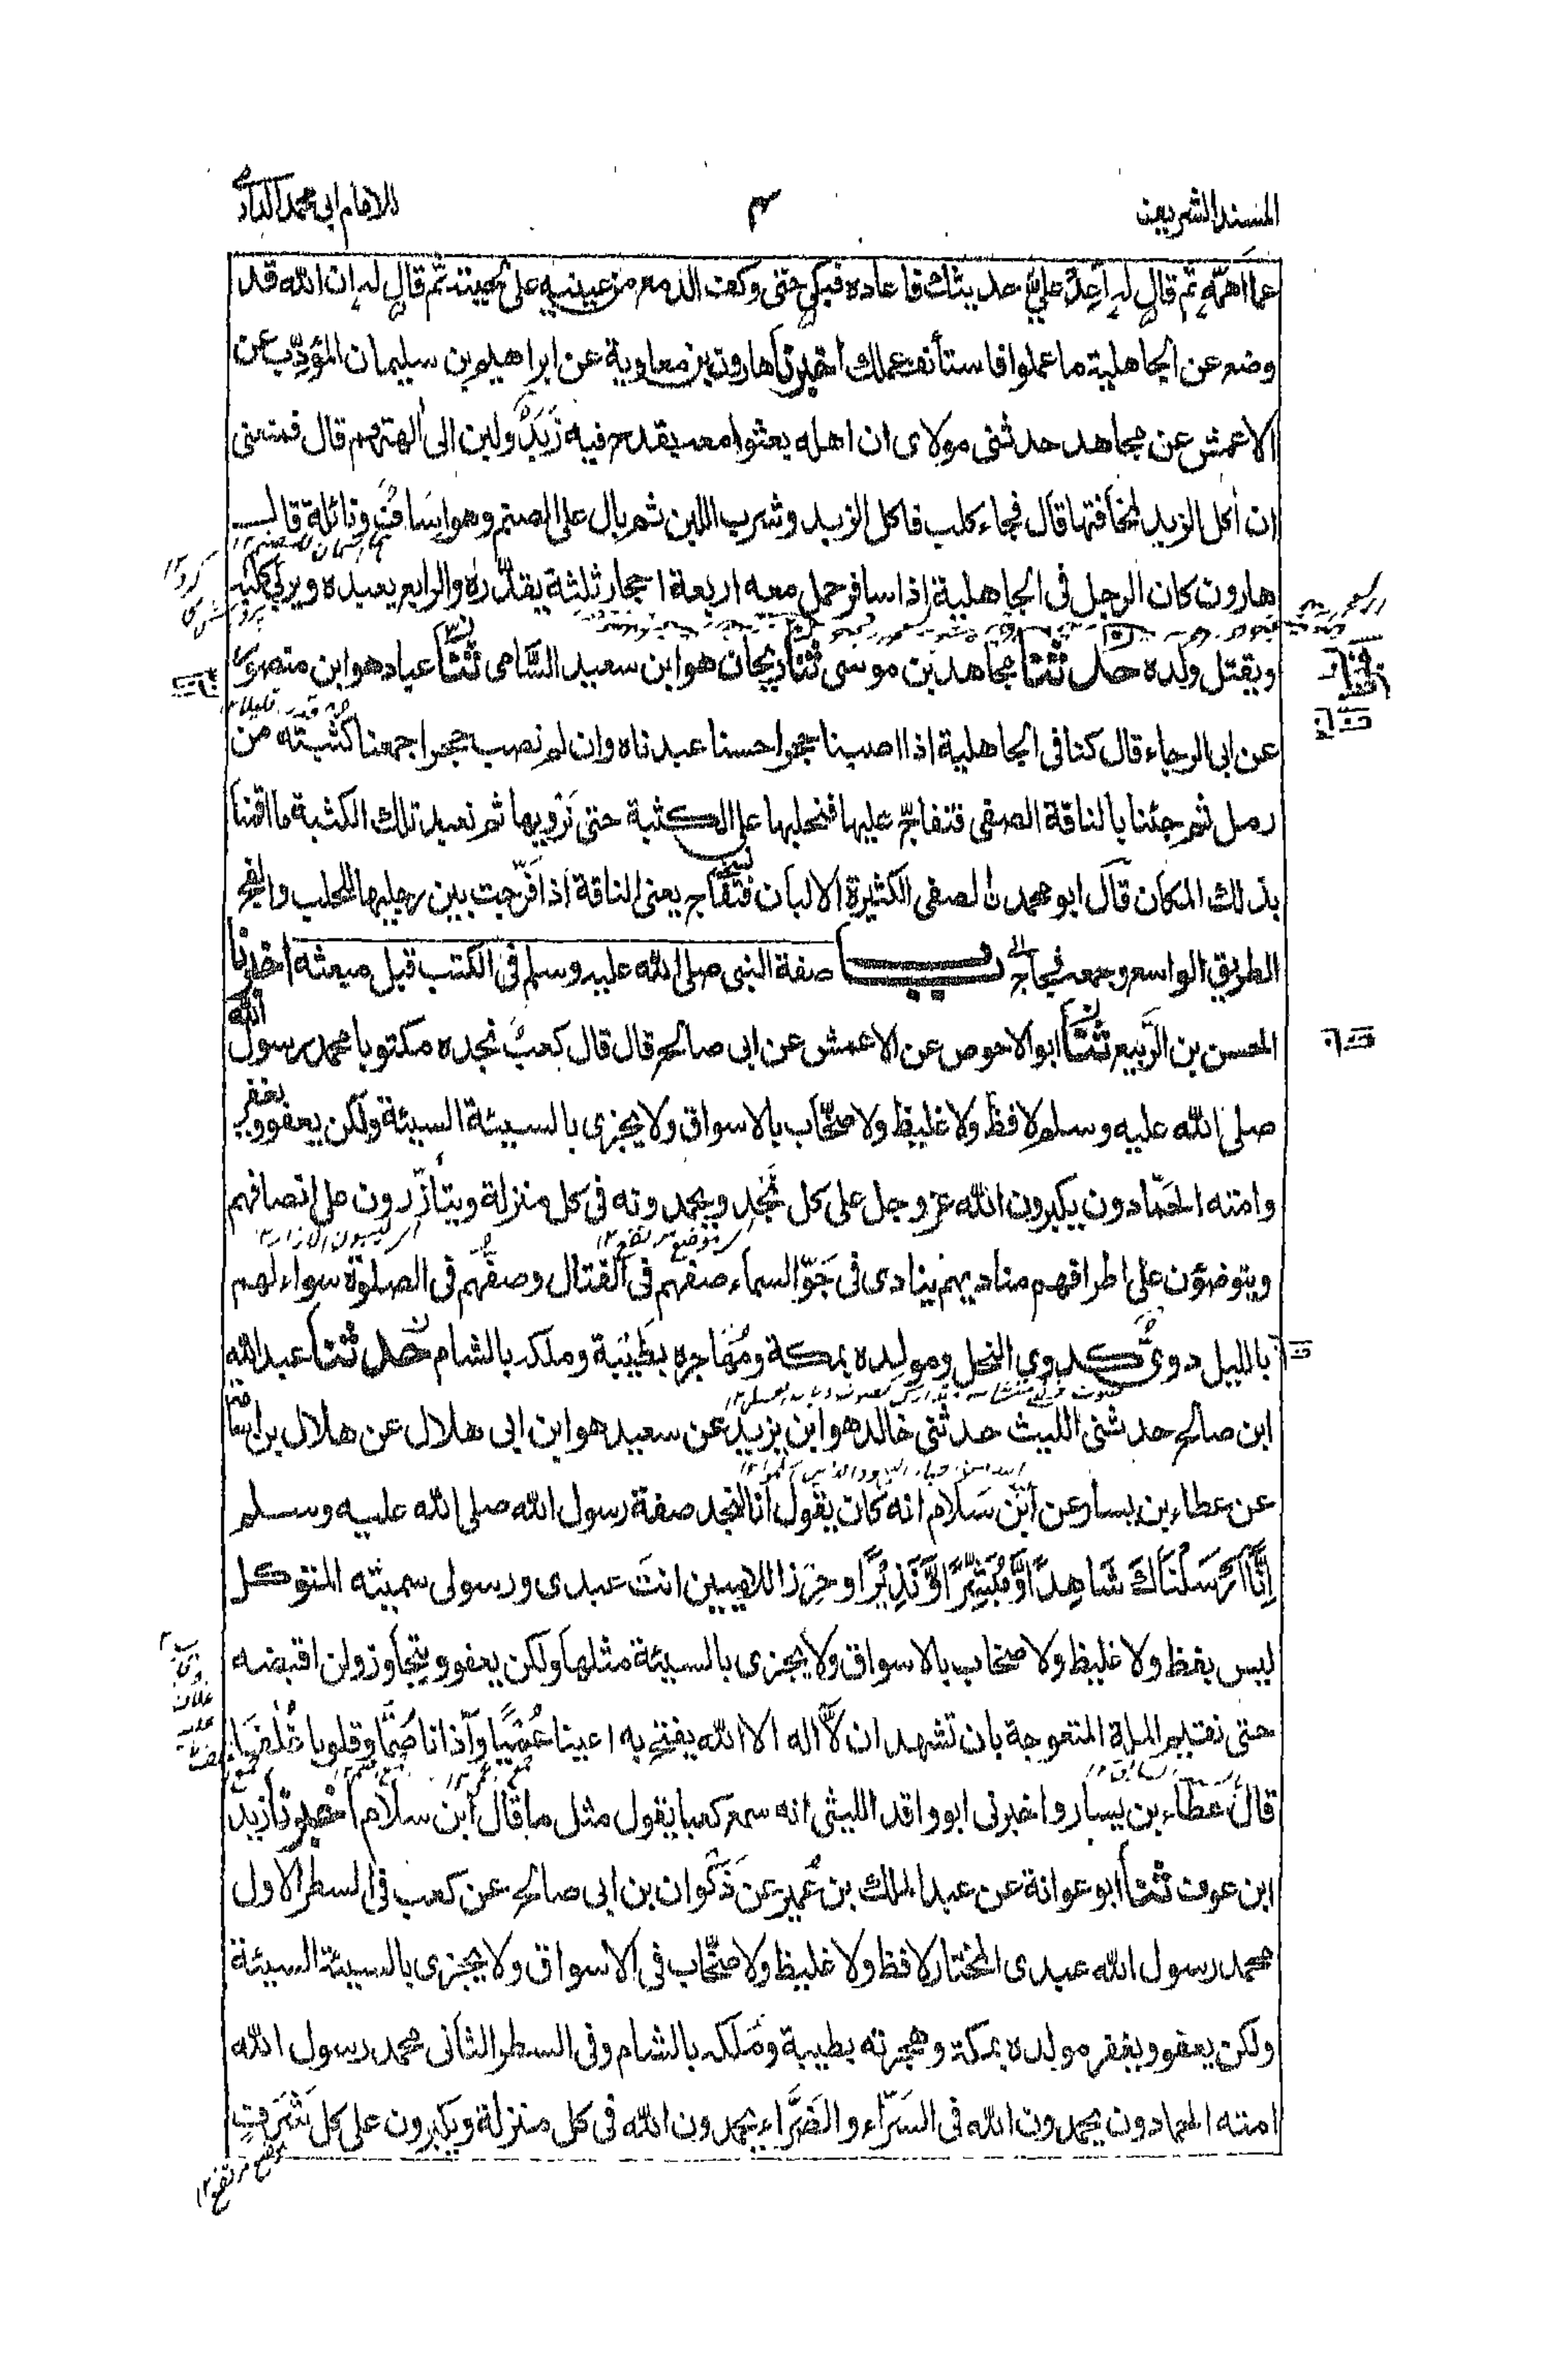 المسند الشريف
٣
للامام ابي محمد الدارمي
عما اهمّه ثم قال له اَعِدْ عليَّ حديثك فاعاده فبكى حتى وكف الدمع من عينيه على لحيته ثم قال له ان الله قد
وضع عن الجاهلية ما عملوا فاستأنف عملك اخبرنا هارون بن معاوية عن ابراهيم بن سليمان المؤدّب عن
الاعمش عن مجاهد حدثنى مولاى ان اهله بعثوا معه بقدح فيه زُبَدٌ ولبن الى آلهتهم قال فمنعنى
ان اٰكل الزبد لمخافتها قال فجاء كلب فاكل الزبد وشرب اللبن ثم بال على الصنم وهو اِسَافُ ونائلة قال
هارون كان الرجل فى الجاهلية اذا سافر حمل معه اربعة احجار ثلثة يقدّره والرابع يعبده ويربي كلبه
ويقتل ولده حدثنا مجاهد بن موسى ثنا ريحان هو ابن سعيد السَّامى ثنا عباد هو ابن منصور
عن ابى الرجاء قال كنا فى الجاهلية اذا اصبنا حجرا حسنا عبدناه وان لم نصب حجرا جمعنا كثبته من
رمل ثم جئنا بالناقة الصفى فتفاجّ عليها فنحلبها على الكثبة حتى نَرْوِيها ثم نعبد تلك الكثبة ما اقمنا
بذلك المكان قال ابو محمد الصفى الكثيرة الالبان فتفاج يعنى الناقة اذا فَرَّجت بين رجليها للحلب والفج
الطريق الواسع وجمعه فجاج باب صفة النبى صلى الله عليه وسلم فى الكتب قبل مبعثه اخبرنا
الحسن بن الرَّبيع ثنا ابو الاحوص عن الاعمش عن ابى صالح قال قال كعبٌ نجده مكتوبا محمد رسول الله
صلى الله عليه وسلم لا فظ ولا غليظ ولا صخّاب بالاسواق ولا يجزى بالسيئة السيئة ولكن يعفو ويغفر
وامته الحَمّادون يكبرون الله عز وجل على كل نَجْدٍ ويحمدونه فى كل منزلة ويتأزّرون على انصافهم
ويتوضؤن على اطرافهم مناديهم ينادى فى جَوّ السماء صفهم فى القتال وصفّهم فى الصلوة سواء لهم
بالليل دوىٌّ كدوى النحل ومولده بمكة ومُهَاجره بطَيْبَة وملكه بالشام حدثنا عبد الله
ابن صالح حدثنى الليث حدثنى خالد هو ابن يزيد عن سعيد هو ابن ابى هلال عن هلال بن اسامة
عن عطاء بن يسار عن ابن سَلام انه كان يقول انا لنجد صفة رسول الله صلى الله عليه وسلم
اِنَّا اَرْسَلْنَاكَ شَاهِدًا وَّمُبَشِّرًا وَّنَذِيْرًا وحِرْزا للاميين انتَ عبدى ورسولى سميته المتوكل
ليس بفظ ولا غليظ ولا صخاب بالاسواق ولا يجزى بالسيئة مثلها ولكن يعفو ويتجاوز ولن اقبضه
حتى نقيم الملة المتعوجة بان تشهد ان لا اله الا الله يفتح به اعينا عُمْيًا واٰذانا صُمًّا وقلوبا غُلْفًا
قال عَطَاء بن يسار واخبرنى ابو واقد الليثى انه سمع كعبا يقول مثل ما قال ابن سلام اخبرنا زيد
ابن عوف ثنا ابو عوانة عن عبد الملك بن عُمير عن ذَكْوان بن ابى صالح عن كعب فى السطر الاول
محمد رسول الله عبدى المختار لا فظ ولا غليظ ولا صخّاب فى الاسواق ولا يجزى بالسيئة السيئة
ولكن يعفو ويغفر مولده بمكة وهجرته بطيبة ومُلكه بالشام وفى السطر الثانى محمد رسول الله
امته الحمادون يحمدون الله فى السَرّاء والضَرَّاء يحمدون الله فى كل منزلة ويكبرون على كل شَرَفٍ